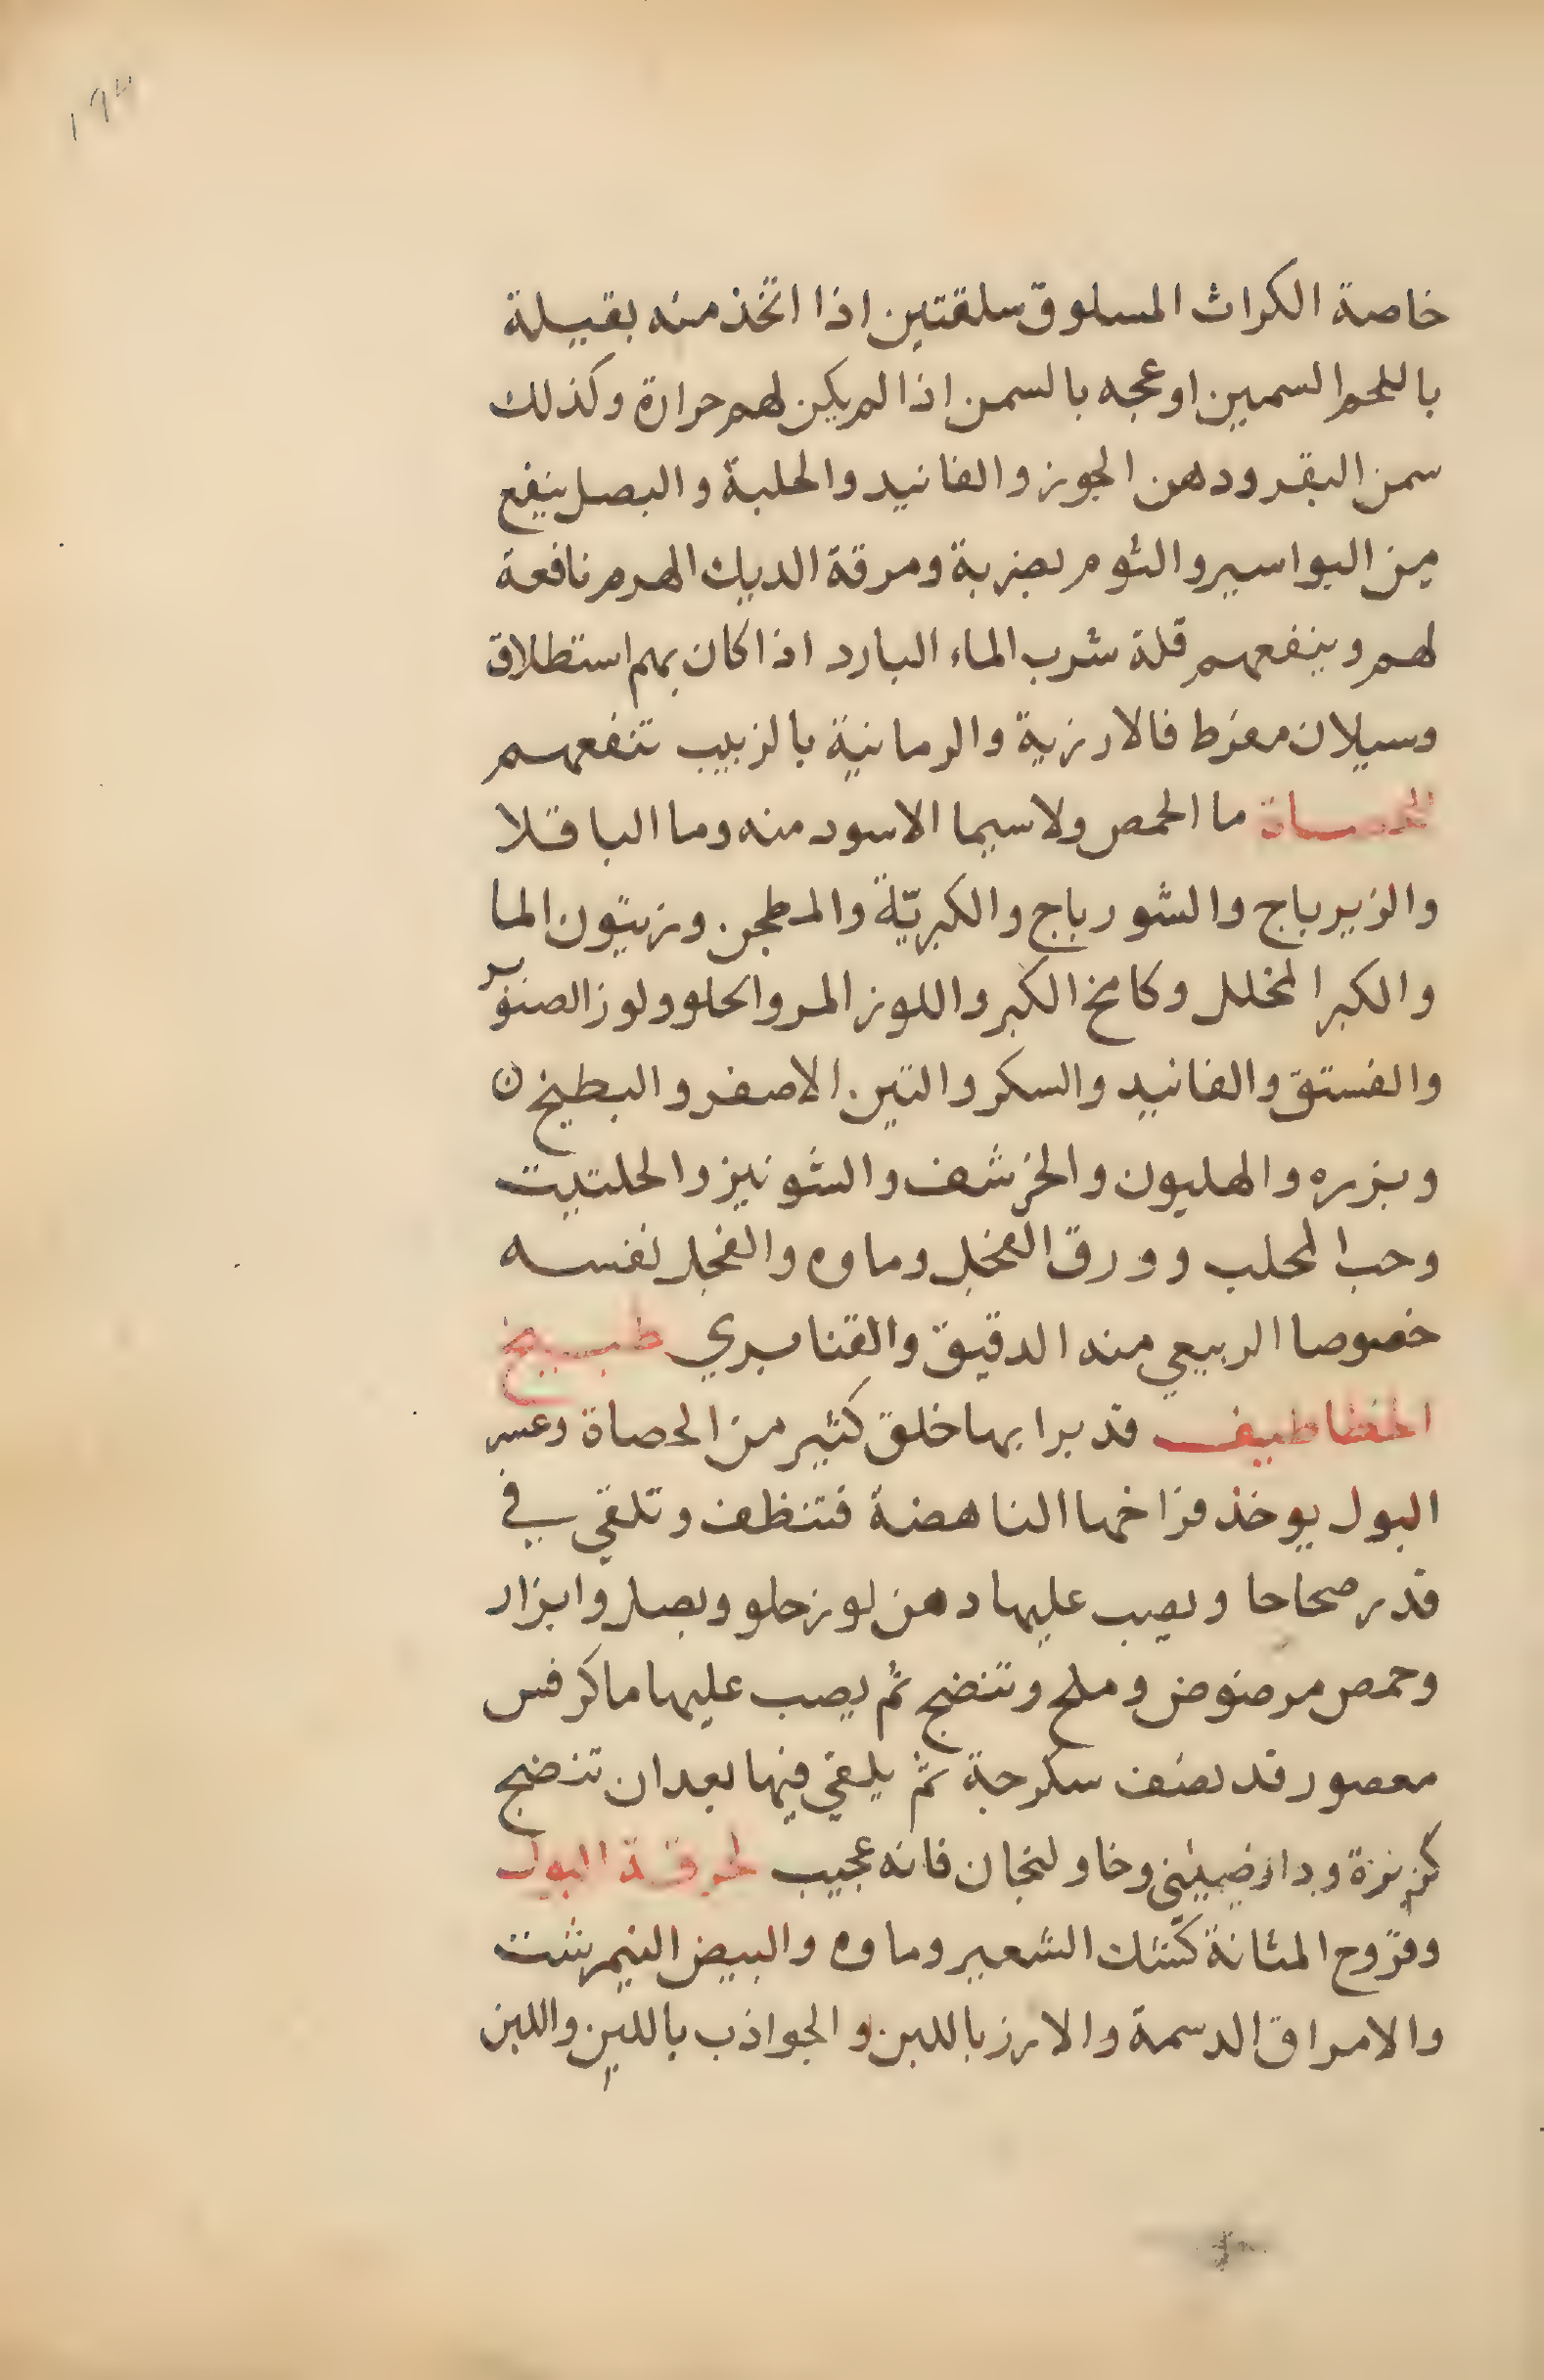 ١٩٣
خاصة الكراث المسلوق سلقتين اذا اتخذ منه بقيلة
باللحم السمين او عجه بالسمن اذا لم يكن لهم حرارة وكذلك
سمن البقر ودهن الجوز والفانيد والحلبة والبصل ينفع
من البواسير والثوم يضر به ومرقة الديك الهرم نافعة
لهم وينفعهم قلة شرب الماء البارد اذا كان بهم استطلاق
وسيلان مفرط فالارزية والرمانية بالزبيب تنفعهم
للحصاة ما الحمص ولاسيما الاسود منه وما الباقلا
والزيرباج والشورباج والكبريّة والمطجن وزيتون الما
والكبر المخلل وكامخ الكبر واللوز المر والحلو ولوز الصنوبر
والفستق والفانيد والسكر والتين الاصفر والبطيخ ن
وبزره والهليون والخرشف والشونيز والحلتيت
وحب المحلب وورق الفجل وماوه والفجل نفسه
خصوصا الربيعي منه الدقيق والقنابري طبيخ
الخطاطيف قد برا بها خلق كثير من الحصاة وعسر
البول يوخذ فراخها الناهضة فتنظف وتلقى في
قدر صحاحا ويصب عليها دهن لوز حلو وبصل وابزار
وحمص مرضوض وملح وتنضج ثم يصب عليها ما كرفس
معصور قدر نصف سكرجة ثم يلقى فيها بعد ان تنضج
كزبرة ودارصيني وخاولنجان فانه عجيب لحرقة البول
وقروح المثانة كشك الشعير وماوه والبيض النيمرشت
والامراق الدسمة والارز باللبن والجواذب باللبن واللبن